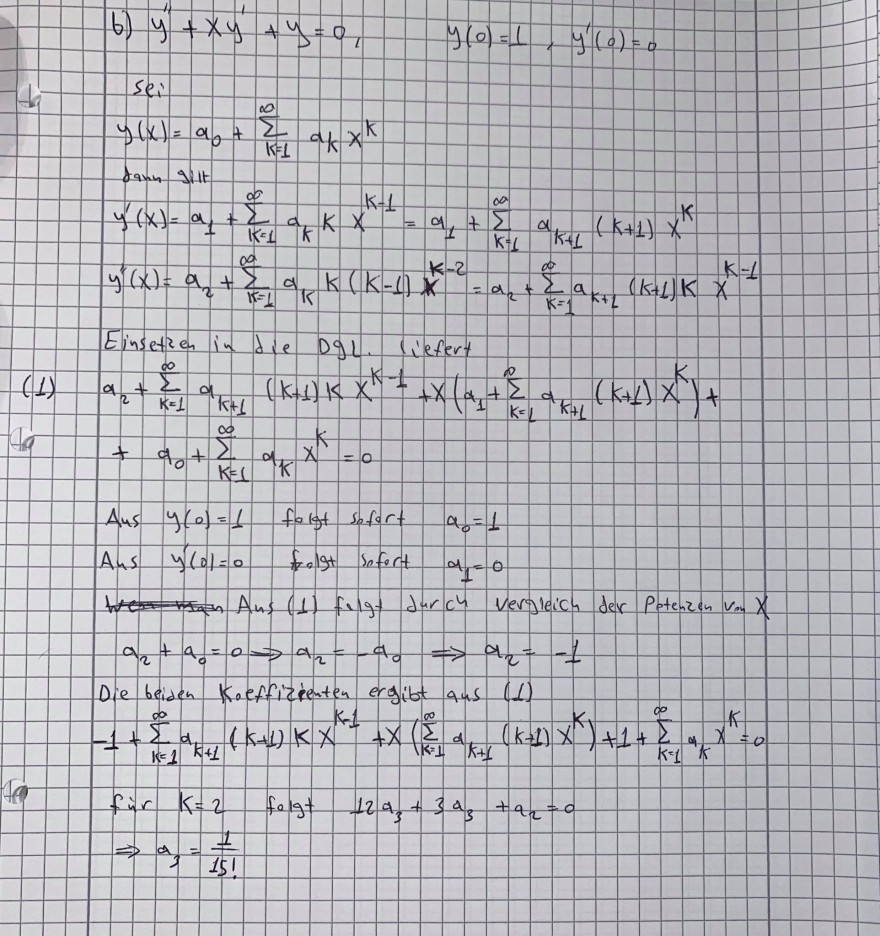 b) y'' + xy' + y = 0, y(0) = 1, y'(0) = 0
sei
y(x) = a₀ + ∑_{k=1}^{∞} a_k x^k
dann gilt
y'(x) = a₁ + ∑_{k=1}^{∞} a_k k x^{k-1} = a₁ + ∑_{k=1}^{∞} a_{k+1} (k+1) x^k
y''(x) = a₂ + ∑_{k=1}^{∞} a_k k (k-1) x^{k-2} = a₂ + ∑_{k=1}^{∞} a_{k+1} (k+1) k x^{k-1}
Einsetzen in die DGL. liefert
(1) a₂ + ∑_{k=1}^{∞} a_{k+1} (k+1) k x^{k-1} + x (a₁ + ∑_{k=1}^{∞} a_{k+1} (k+1) x^k) +
+ a₀ + ∑_{k=1}^{∞} a_k x^k = 0
Aus y(0) = 1 folgt sofort a₀ = 1
Aus y'(0) = 0 folgt sofort a₁ = 0
Aus (1) folgt durch vergleich der Potenzen von x
a₂ + a₀ = 0 ⇒ a₂ = -a₀ ⇒ a₂ = -1
Die beiden Koeffizienten ergibt aus (1)
-1 + ∑_{k=1}^{∞} a_{k+1} (k+1) k x^{k-1} + x (∑_{k=1}^{∞} a_{k+1} (k+1) x^k) + 1 + ∑_{k=1}^{∞} a_k x^k = 0
für k = 2 folgt 12a₃ + 3a₃ + a₂ = 0
⇒ a₃ = 1/15!